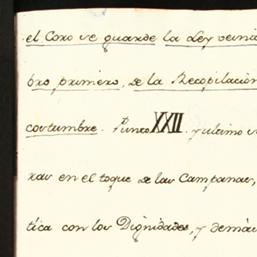 el Coro se guarde la Ley veinti
bro primero, de la Recopilacion
costumbre. Punto XXII. y ultimo s
rar en el toque de las Campanas,
tica con los Dignidades, y demás